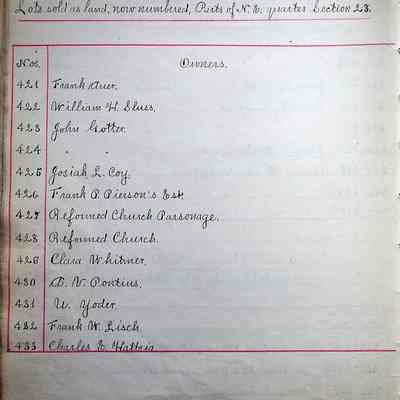 Lots sold as land, now numbered, Parts of N. E. quarter Section 23.
Nos. Owners.
421 Frank
422 William H. Sluss.
423 John Gotter.
424 " "
425 Josiah L. Coy.
426 Frank P. Pierson's Est.
427 Reformed Church Parsonage.
428 Reformed Church.
429 Clara Whitmer.
430 D. V. Pontius.
431 U. Yoder.
432 Frank W. Lisch.
433 Charles E.